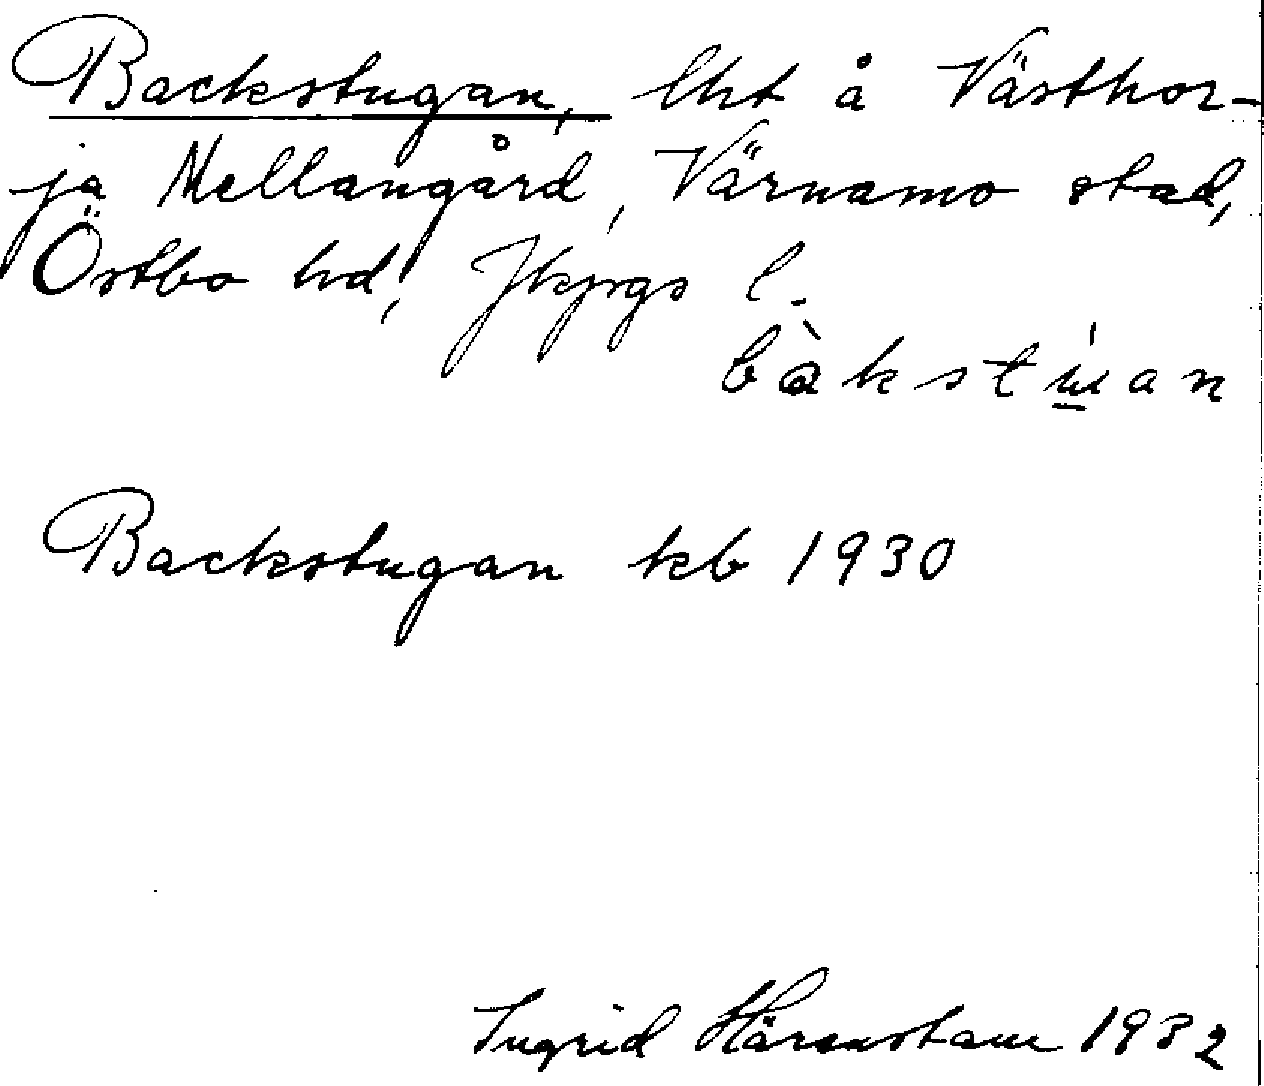 Backstugan, lht å Västhor-
ja Mellangård, Värnamo stad,
Östbo hd, Jkpgs l.
Backstugan kb 1930
Ingrid 1932